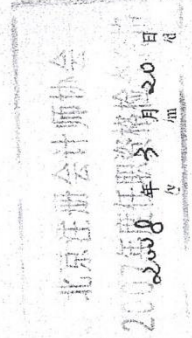 北京注册会计师协会
2007年度任职资格检
2008 年 3 月 20 日
/y /m /d